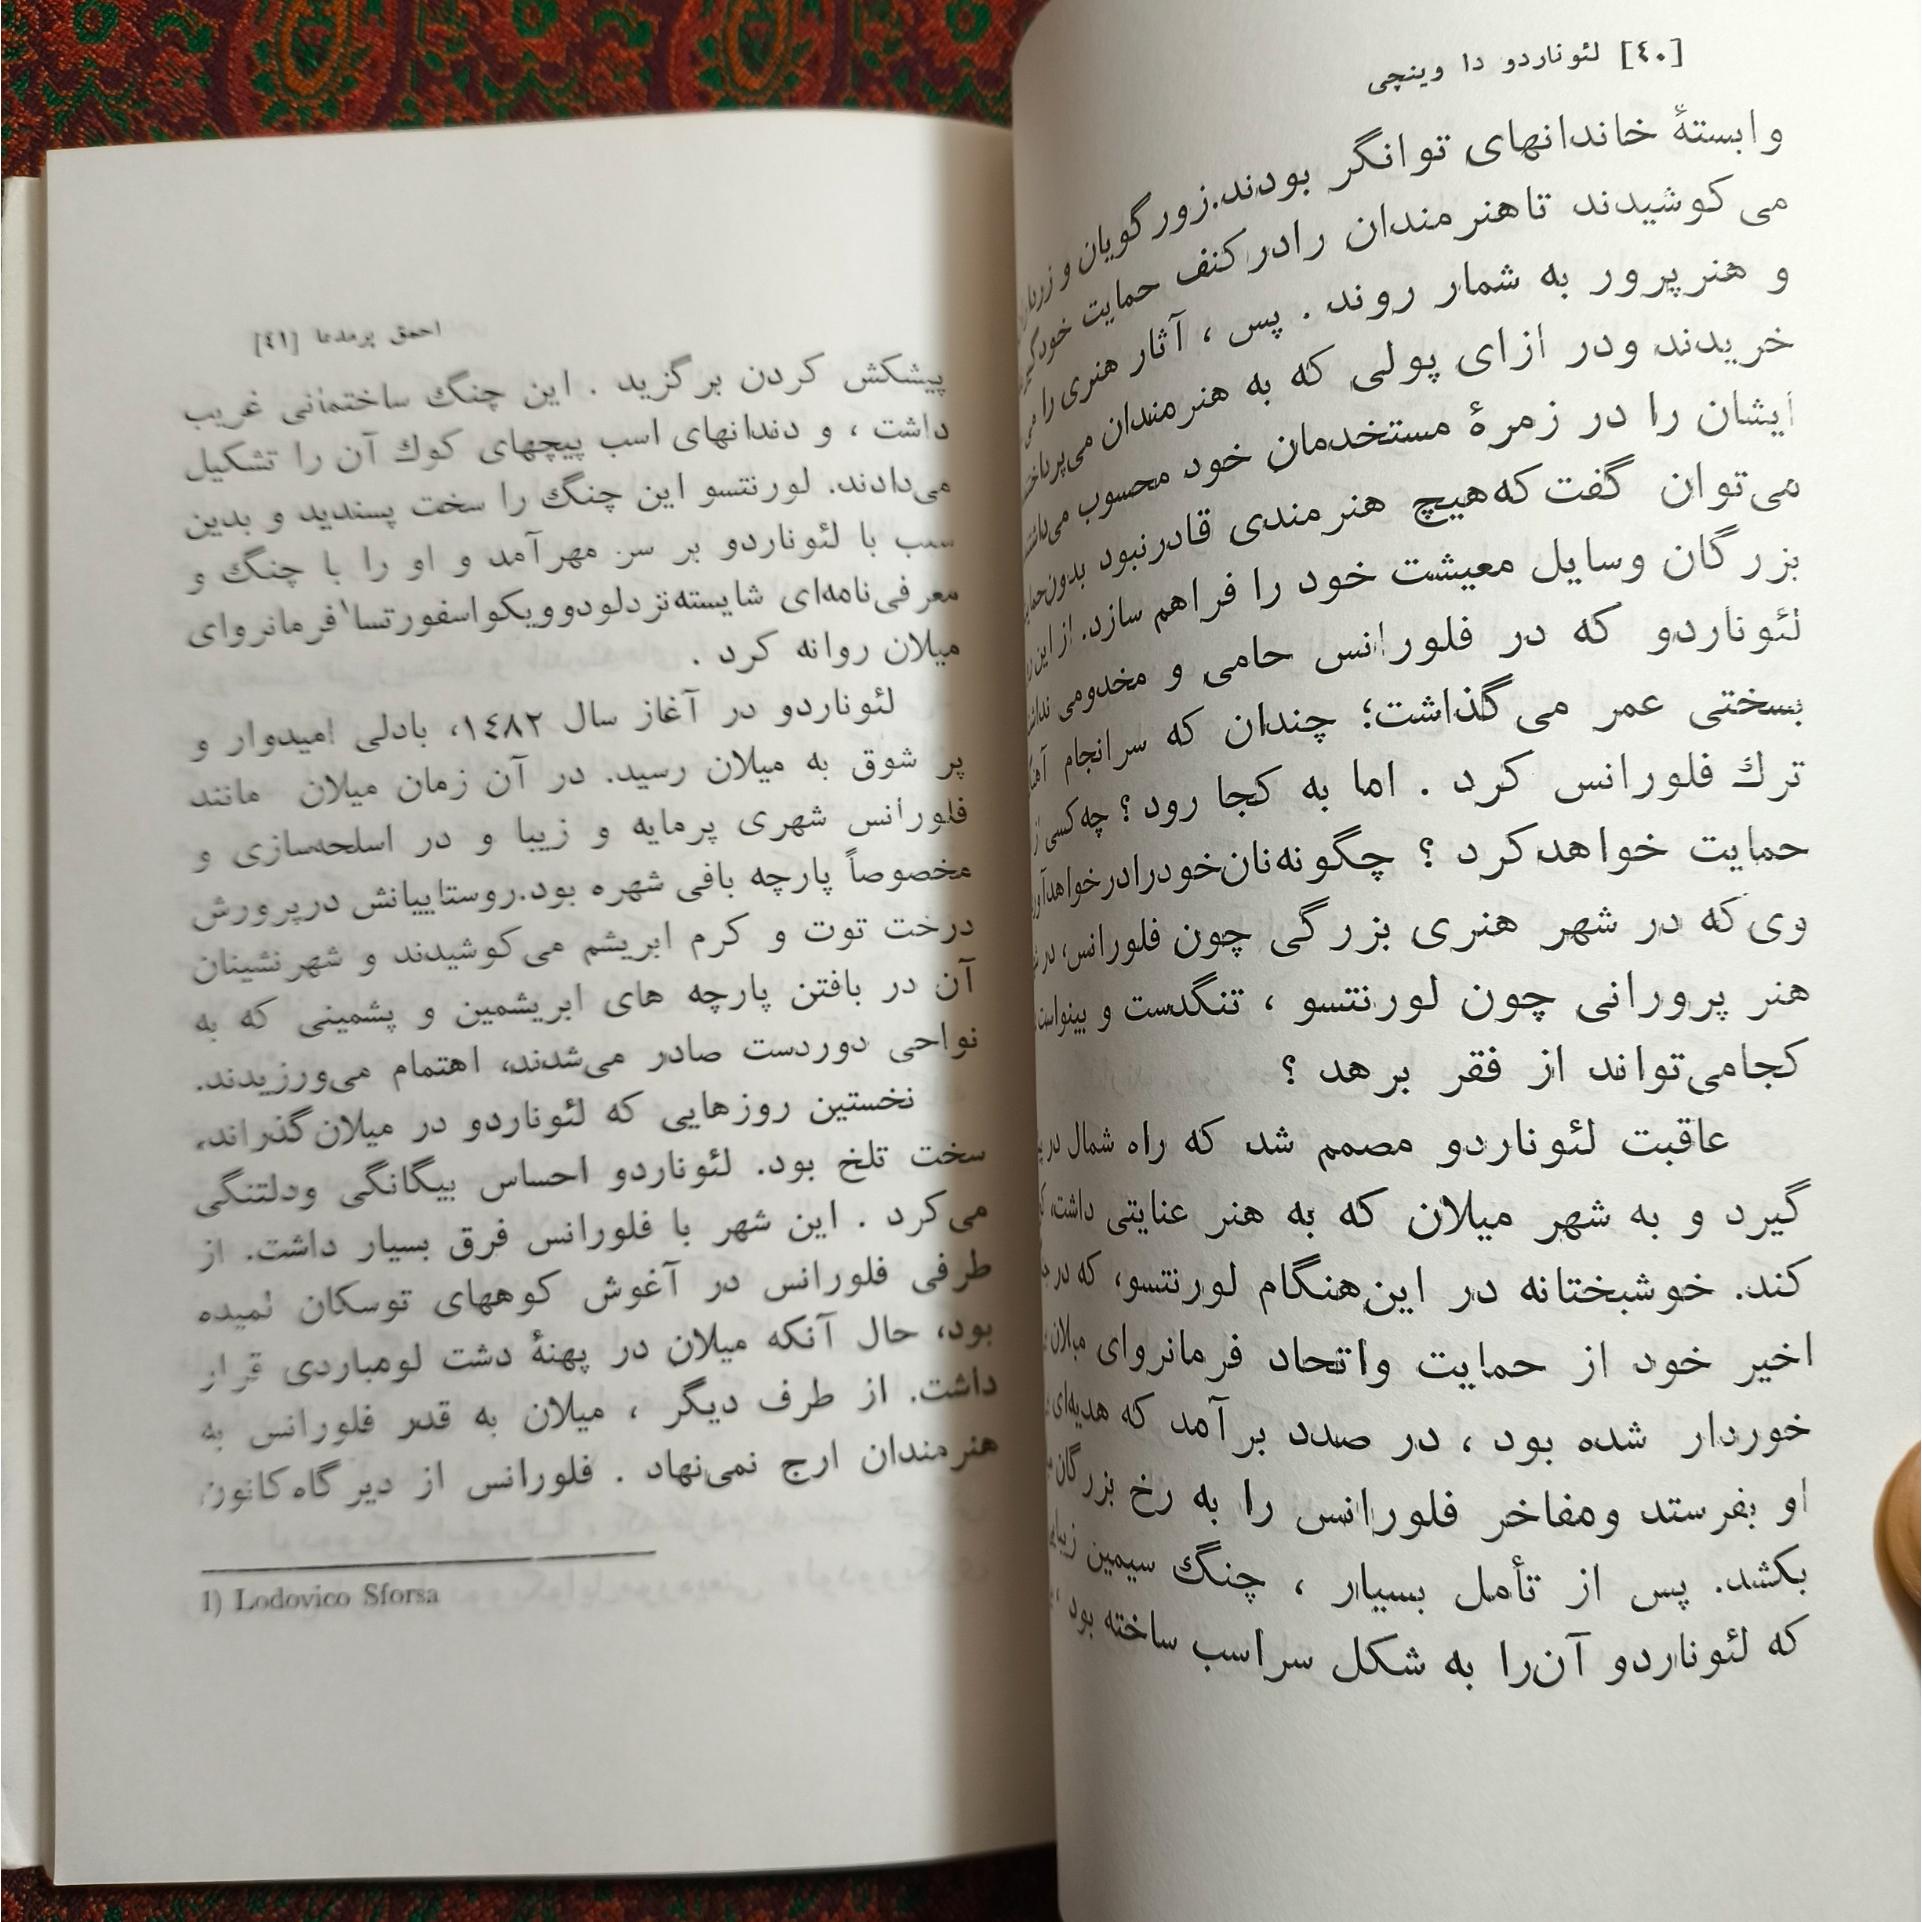 [٤٠] لئوناردو دا وینچی
وابستهٔ خاندانهای توانگر بودند. زورگویان و
می‌کوشیدند تا هنرمندان را در کنف حمایت خود
و هنرپرور به شمار روند . پس ، آثار هنری را
خریدند و در ازای پولی که به هنرمندان
ایشان را در زمرهٔ مستخدمان خود محسوب
می‌توان گفت که هیچ هنرمندی قادر نبود بدون
بزرگان وسایل معیشت خود را فراهم سازد. از این
لئوناردو که در فلورانس حامی و مخدومی
بسختی عمر می‌گذاشت؛ چندان که سرانجام
ترك فلورانس کرد . اما به کجا رود ؟ چه کسی
حمایت خواهد کرد ؟ چگونه نان خود را در خواهد
وی که در شهر هنری بزرگی چون فلورانس، در
هنر پرورانی چون لورنتسو ، تنگدست و بینواست
کجا می‌تواند از فقر برهد ؟
عاقبت لئوناردو مصمم شد که راه شمال در
گیرد و به شهر میلان که به هنر عنایتی داشت،
کند. خوشبختانه در این هنگام لورنتسو، که در
اخیر خود از حمایت و اتحاد فرمانروای میلان
خوردار شده بود ، در صدد برآمد که هدیه‌ای
او بفرستد و مفاخر فلورانس را به رخ بزرگان
بکشد. پس از تأمل بسیار ، چنگ سیمین
که لئوناردو آن را به شکل سر اسب ساخته بود ،
احمق پرمدعا [٤١]
پیشکش کردن برگزید . این چنگ ساختمانی غریب
داشت ، و دندانهای اسب پیچهای کوك آن را تشکیل
می‌دادند. لورنتسو این چنگ را سخت پسندید و بدین
سبب با لئوناردو بر سر مهر آمد و او را با چنگ و
معرفی‌نامه‌ای شایسته نزد لودوویکو اسفورتسا١ فرمانروای
میلان روانه کرد .
لئوناردو در آغاز سال ١٤٨٢، با دلی امیدوار و
پر شوق به میلان رسید. در آن زمان میلان مانند
فلورانس شهری پرمایه و زیبا و در اسلحه‌سازی و
مخصوصاً پارچه بافی شهره بود. روستاییانش در پرورش
درخت توت و کرم ابریشم می‌کوشیدند و شهرنشینان
آن در بافتن پارچه های ابریشمین و پشمینی که به
نواحی دوردست صادر می‌شدند، اهتمام می‌ورزیدند.
نخستین روزهایی که لئوناردو در میلان گذراند،
سخت تلخ بود. لئوناردو احساس بیگانگی و دلتنگی
می‌کرد . این شهر با فلورانس فرق بسیار داشت. از
طرفی فلورانس در آغوش کوههای توسکان لمیده
بود، حال آنکه میلان در پهنهٔ دشت لومباردی قرار
داشت. از طرف دیگر ، میلان به قدر فلورانس به
هنرمندان ارج نمی‌نهاد . فلورانس از دیرگاه کانون
1) Lodovico Sforsa